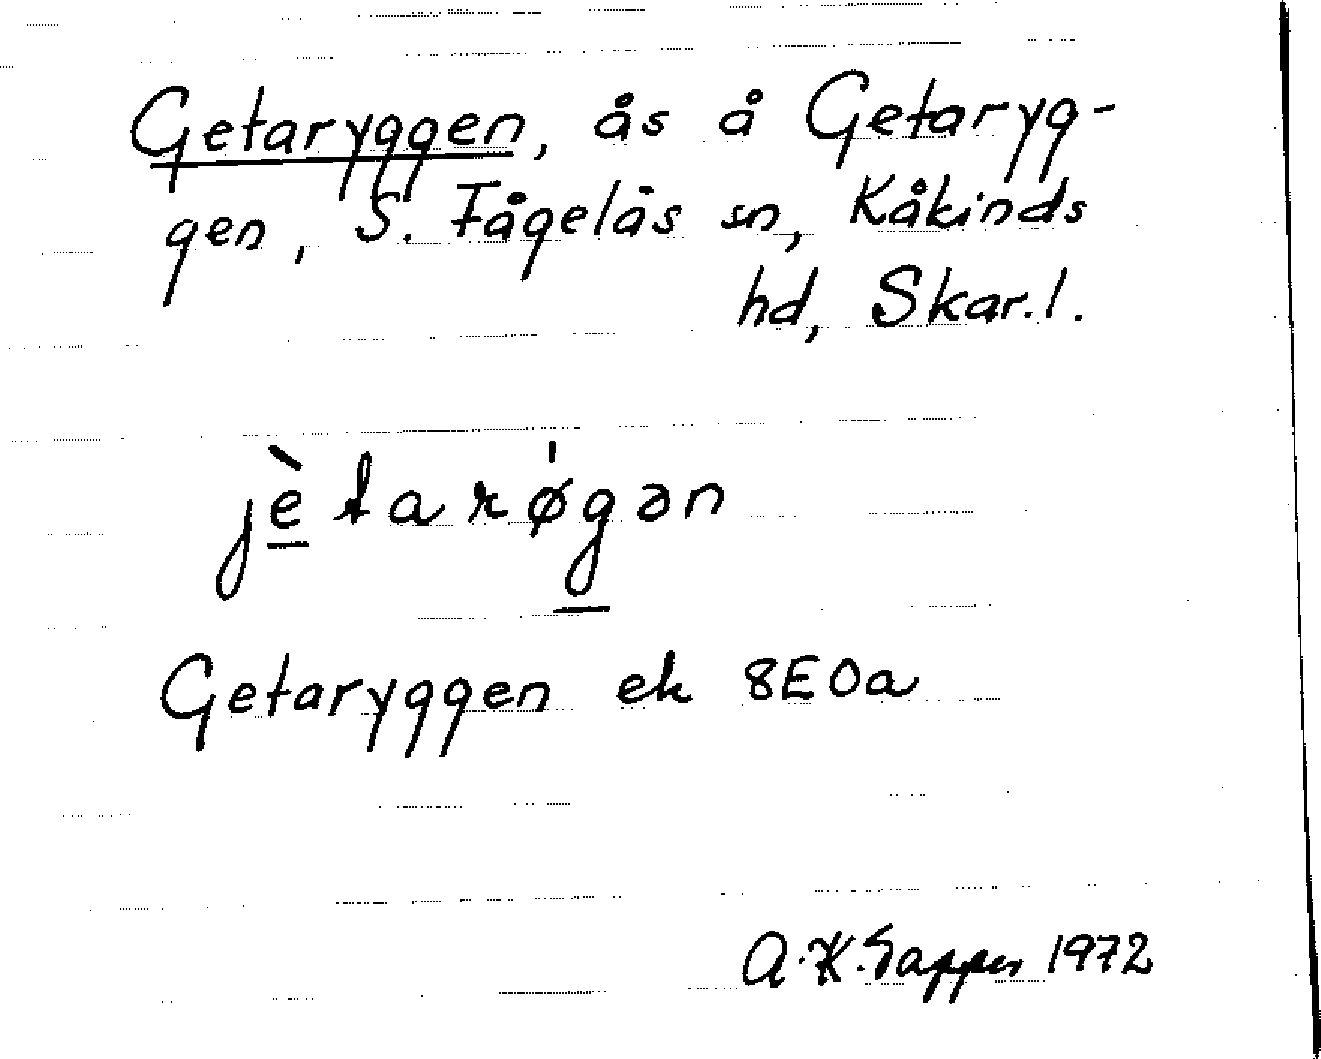 Getaryggen, ås å Getaryg-
gen, S. Fågelås sn, Kåkinds
hd, Skar.l.
jè̱tarø̍g̱ən
Getaryggen ek 8E0a
A.K. 1972